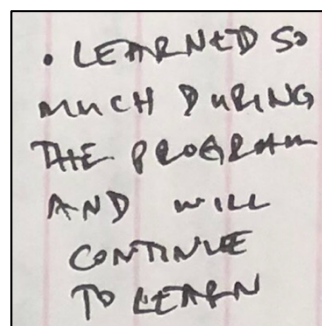 • LEARNED SO
MUCH DURING
THE PROGRAM
AND WILL
CONTINUE
TO LEARN